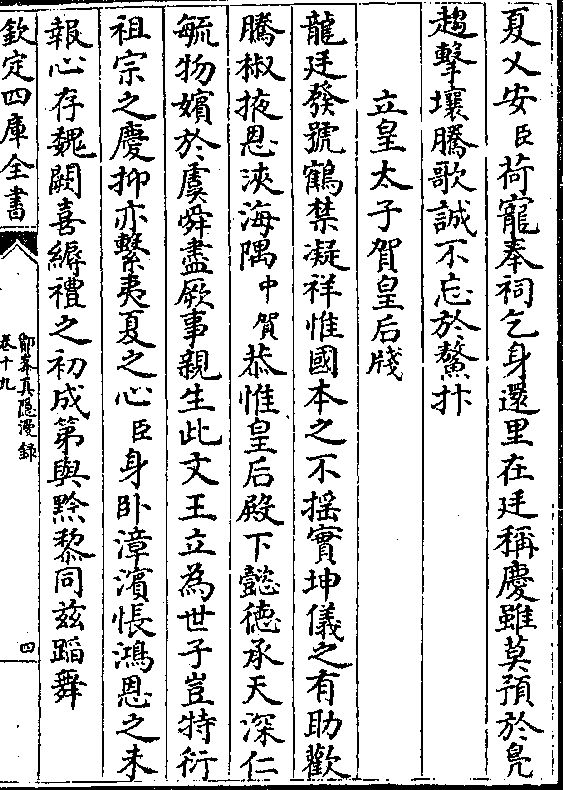 夏乂安臣荷寵奉祠乞身還里在廷稱慶雖莫預於鳧
趨擊壤騰歌誠不忘於鰲抃
立皇太子賀皇后牋
龍廷發號鶴禁凝祥惟國本之不揺實坤儀之有助歡
騰椒掖恩浹海隅中賀恭惟皇后殿下懿德承天深仁
毓物嬪於虞舜盡厥事親生此文王立為世子豈特衍
祖宗之慶抑亦繫夷夏之心臣身卧漳濵悵鴻恩之未
報心存魏闕喜縟禮之初成第與黔黎同兹蹈舞
欽定四庫全書
鄮峯真隱漫錄
卷十九
四